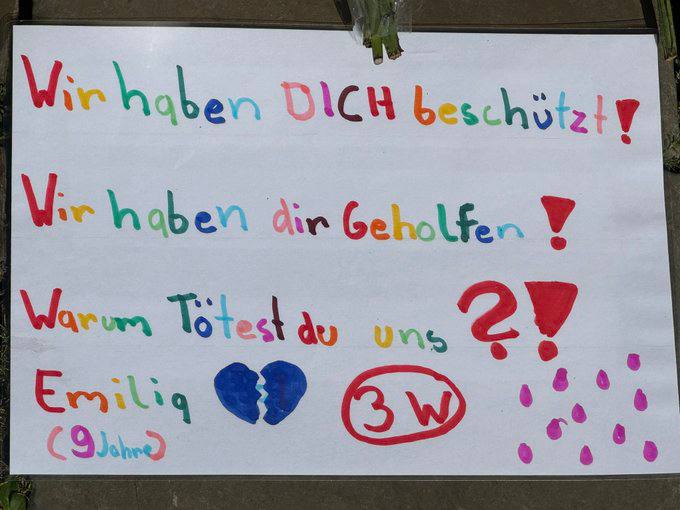 Wir haben DICH beschützt!
Wir haben dir Geholfen!
Warum Tötest du uns?!
Emilia
(9 Jahre)
3W